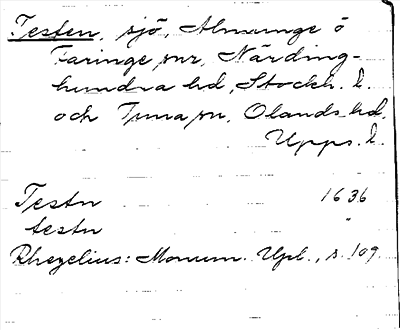 Testen, sjö, Almunge o
Faringe snr, Närding-
hundra hd, Stockh. l.
och Tuna sn, Olands hd,
Upps. l.
Testn 1636
testn "
Rhezelius: Monum. Upl., s. 109.